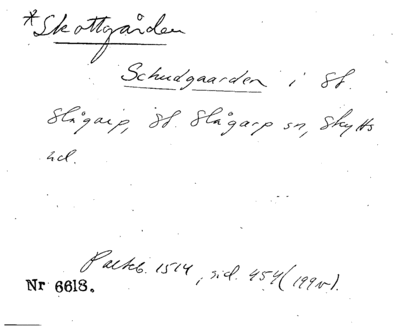 *Skottgården
Schudgaarden i St.
Slågarp, St. Slågarp sn, Skytts
hd.
Palteb. 1514, sid. 454 (199v).
Nr 6618.